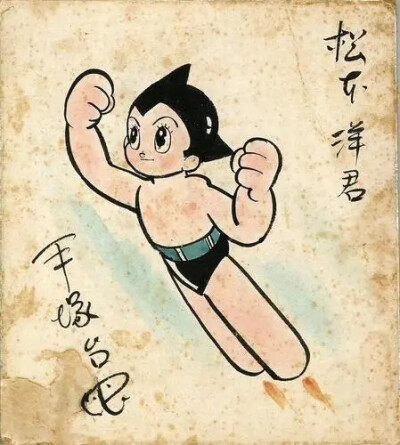 松本洋君
手塚治虫